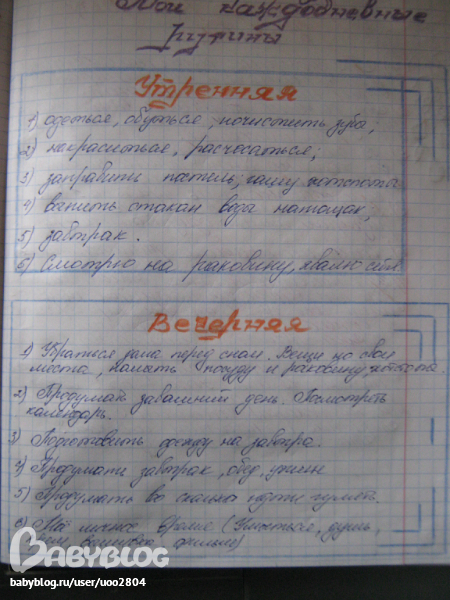 Мои каждодневные
Рутины
Утренняя
1) одеться, обуться, почистить зубы,
2) накраситься, расчесаться;
3) заправить постель,
4) выпить стакан воды натощак,
5) завтрак.
6) Смотрю на раковину, хвалю себя.
Вечерняя
1) Убраться дома перед сном. Вещи на свои
места, помыть посуду и раковину,
2) Продумай завташний день. Посмотреть
календарь.
3) Подготовить одежду на завтра.
4) Продумать завтрак, обед, ужин
5) Продумать во сколько идти гулять.
6) Моё личное время (Умыться, душ,
вышивка, фильм)
BABYBLOG
babyblog.ru/user/uoo2804